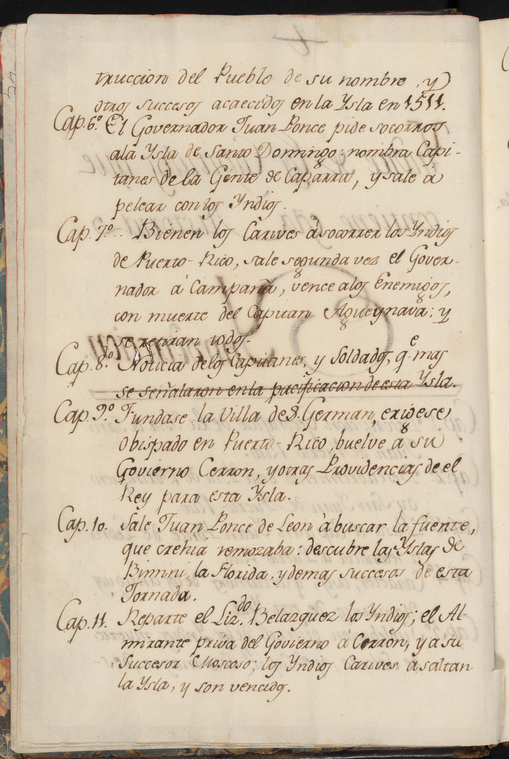 truccion del Pueblo de su nombre, y
otros succesos acaecidos en la Ysla en 1511.
Cap. 6.º El Governador Juan Ponce pide socorros
ala Ysla de Santo Domingo: nombra Capi-
tanes de la Gente de Caparra, y sale à
pelear con los Yndios.
Cap. 7.º Bienen los Carives à socorrer los Yndios
de Puerto-Rico, sale segunda vez el Gover-
nador à Campaña, vence alos Enemigos,
con muerte del Capitan Agueynava: y
se retiran todos.
Cap. 8.º Noticia delos Capitanes, y Soldados, q.e mas
se señalaron en la pacificacion de esta Ysla.
Cap. 9.º Fundase la Villa de S. German, erigese
Obispado en Puerto-Rico, buelve à su
Govierno Cerron, y otras Providencias de el
Rey para esta Ysla.
Cap. 10. Sale Juan Ponce de Leon à buscar la fuente,
que crehia remozaba: descubre las Yslas de
Bimini, la Florida, y demas succesos de esta
Jornada.
Cap. 11. Reparte el Liz.do Belazquez los Yndios; el Al-
mirante priva del Govierno à Cerron, y a su
Succesor Moscoso; los Yndios Carives asaltan
la Ysla, y son vencidos.